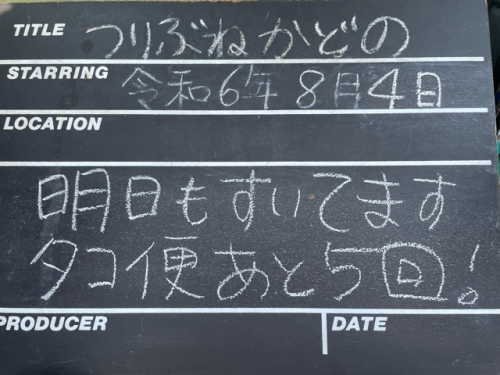 TITLE つりぶねかどの
STARRING 令和6年8月4日
LOCATION
明日もすいてます
タコ便あと5回!
PRODUCER DATE